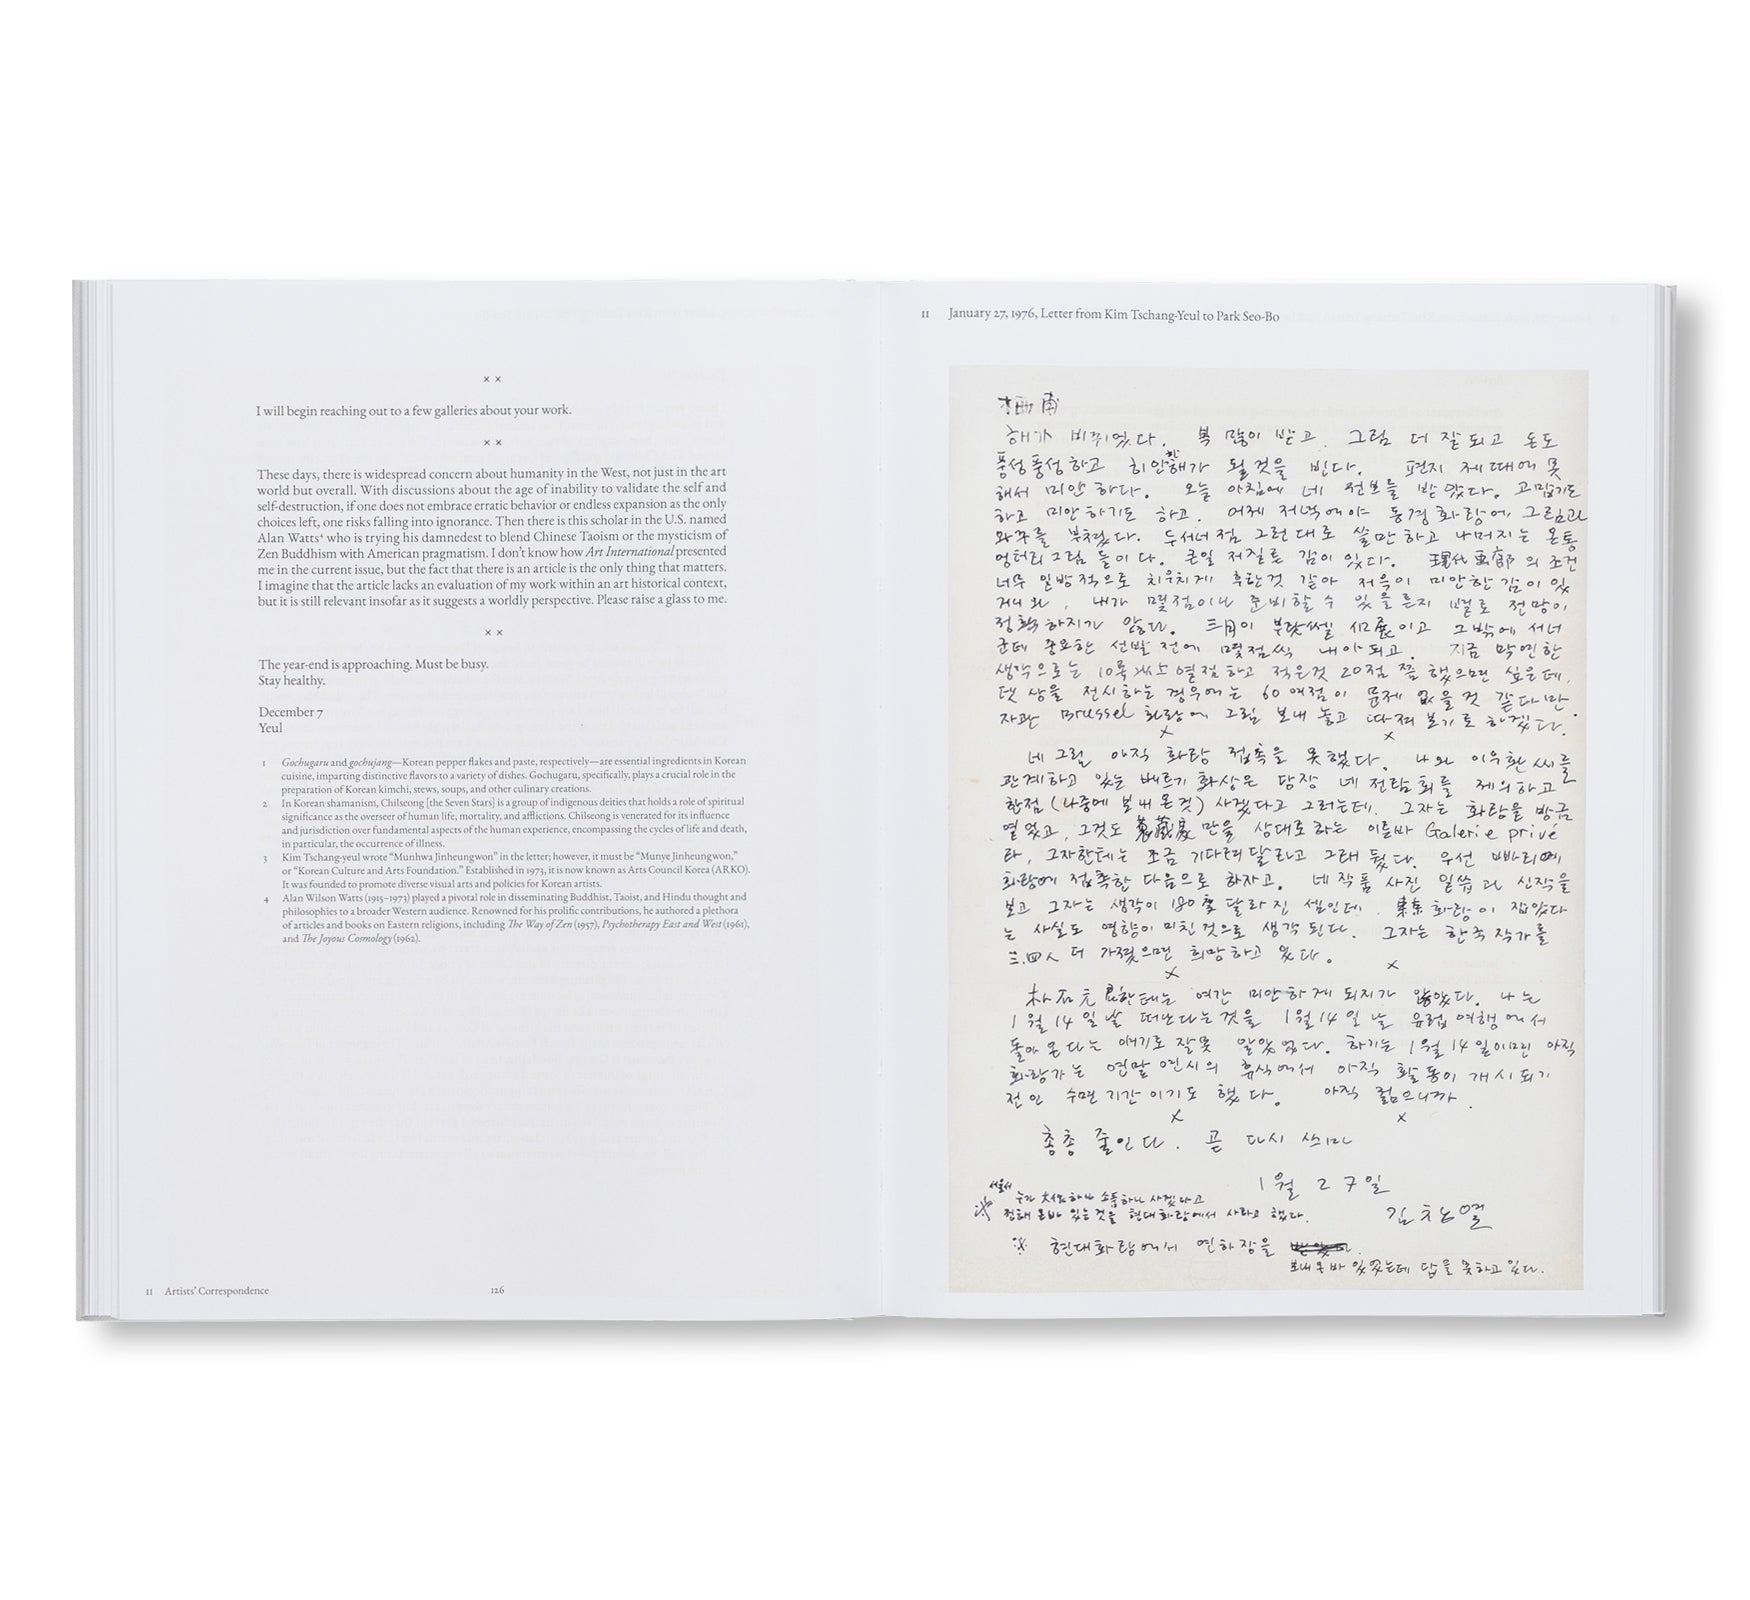 × ×
I will begin reaching out to a few galleries about your work.
× ×
These days, there is widespread concern about humanity in the West, not just in the art
world but overall. With discussions about the age of inability to validate the self and
self-destruction, if one does not embrace erratic behavior or endless expansion as the only
choices left, one risks falling into ignorance. Then there is this scholar in the U.S. named
Alan Watts⁴ who is trying his damnedest to blend Chinese Taoism or the mysticism of
Zen Buddhism with American pragmatism. I don't know how Art International presented
me in the current issue, but the fact that there is an article is the only thing that matters.
I imagine that the article lacks an evaluation of my work within an art historical context,
but it is still relevant insofar as it suggests a worldly perspective. Please raise a glass to me.
× ×
The year-end is approaching. Must be busy.
Stay healthy.
December 7
Yeul
1 Gochugaru and gochujang—Korean pepper flakes and paste, respectively—are essential ingredients in Korean
cuisine, imparting distinctive flavors to a variety of dishes. Gochugaru, specifically, plays a crucial role in the
preparation of Korean kimchi, stews, soups, and other culinary creations.
2 In Korean shamanism, Chilseong [the Seven Stars] is a group of indigenous deities that holds a role of spiritual
significance as the overseer of human life, mortality, and afflictions. Chilseong is venerated for its influence
and jurisdiction over fundamental aspects of the human experience, encompassing the cycles of life and death,
in particular, the occurrence of illness.
3 Kim Tschang-yeul wrote "Munhwa Jinheungwon" in the letter; however, it must be "Munye Jinheungwon,"
or "Korean Culture and Arts Foundation." Established in 1973, it is now known as Arts Council Korea (ARKO).
It was founded to promote diverse visual arts and policies for Korean artists.
4 Alan Wilson Watts (1915–1973) played a pivotal role in disseminating Buddhist, Taoist, and Hindu thought and
philosophies to a broader Western audience. Renowned for his prolific contributions, he authored a plethora
of articles and books on Eastern religions, including The Way of Zen (1957), Psychotherapy East and West (1961),
and The Joyous Cosmology (1962).
11 Artists' Correspondence 126
11 January 27, 1976, Letter from Kim Tschang-Yeul to Park Seo-Bo
栖甫
해가 바뀌었다. 복 많이 받고. 그림 더 잘 되고 돈도
풍성풍성하고 희안한 해가 될것을 빈다. 편지 제때에 못
해서 미안하다. 오늘 아침에 네 전보를 받았다. 고맙기도
하고 미안하기도 하고. 어제 저녁에야 동경화랑에 그림과
와꾸를 부쳤다. 두서너점 그런대로 쓸만하고 나머지는 온통
엉터리 그림들이다. 큰일 저질른 감이 있다. 現代画廊의 조건
너무 일방적으로 치우치게 후한것 같아 저윽이 미안한 감이 있
거니와, 내가 몇점이나 준비할 수 있을른지 별로 전망이
정확하지가 않다. 三月이 부랏쎌 個展이고 그밖에 서너
군데 중요한 선발전에 몇점씩 내야되고. 지금 막연한
생각으로는 10록 열점하고 적은것 20점 쯤 했으면 싶은데,
뎃상을 전시하는 경우에는 60여점이 문제 없을것 같다만.
자관 Brussel 화랑에 그림 보내 놓고 따져 보기로 하겠다.
× ×
네 그림 아직 화랑 접촉을 못했다. 나와 이우환씨를
관계하고 있는 베르기 화상은 당장 네 전람회를 제의하고
한점 (나중에 보내온것) 사겠다고 그러는데. 그자는 화랑을 방금
열었고, 그것도 만을 상대로하는 이른바 Galerie privé
라, 그자한테는 조금 기다려달라고 그래 뒀다. 우선 빠리에
화랑에 접촉한 다음으로 하자고. 네 작품 사진 일씁과 신작을
보고 그자는 생각이 180度 달라진 셈인데. 東京화랑이 잡았다
는 사실도 영향이 미친것으로 생각된다. 그자는 한국작가를
三.四人 더 가졌으면 희망하고 있다.
× ×
朴石元 한테는 여간 미안하게 되지가 않았다. 나는
1월 14일날 떠난다는것을 1월 14일날 유럽여행에서
돌아온다는 얘기로 잘못 알았었다. 하기는 1월 14일이면 아직
화랑가는 연말연시의 휴식에서 아직 활동이 개시되기
전인 수면기간이기도 했다. 아직 젊으니까.
× ×
총총 줄인다. 곧 다시 쓰마
1월 27일
김창열
서울서
누가 大作하나 소품하나 사겠다고
청해 온바 있는것을 현대화랑에서 사라고 했다.
※ 현대화랑에서 연하장을
보내온바 있었는데 답을 못하고 있다.